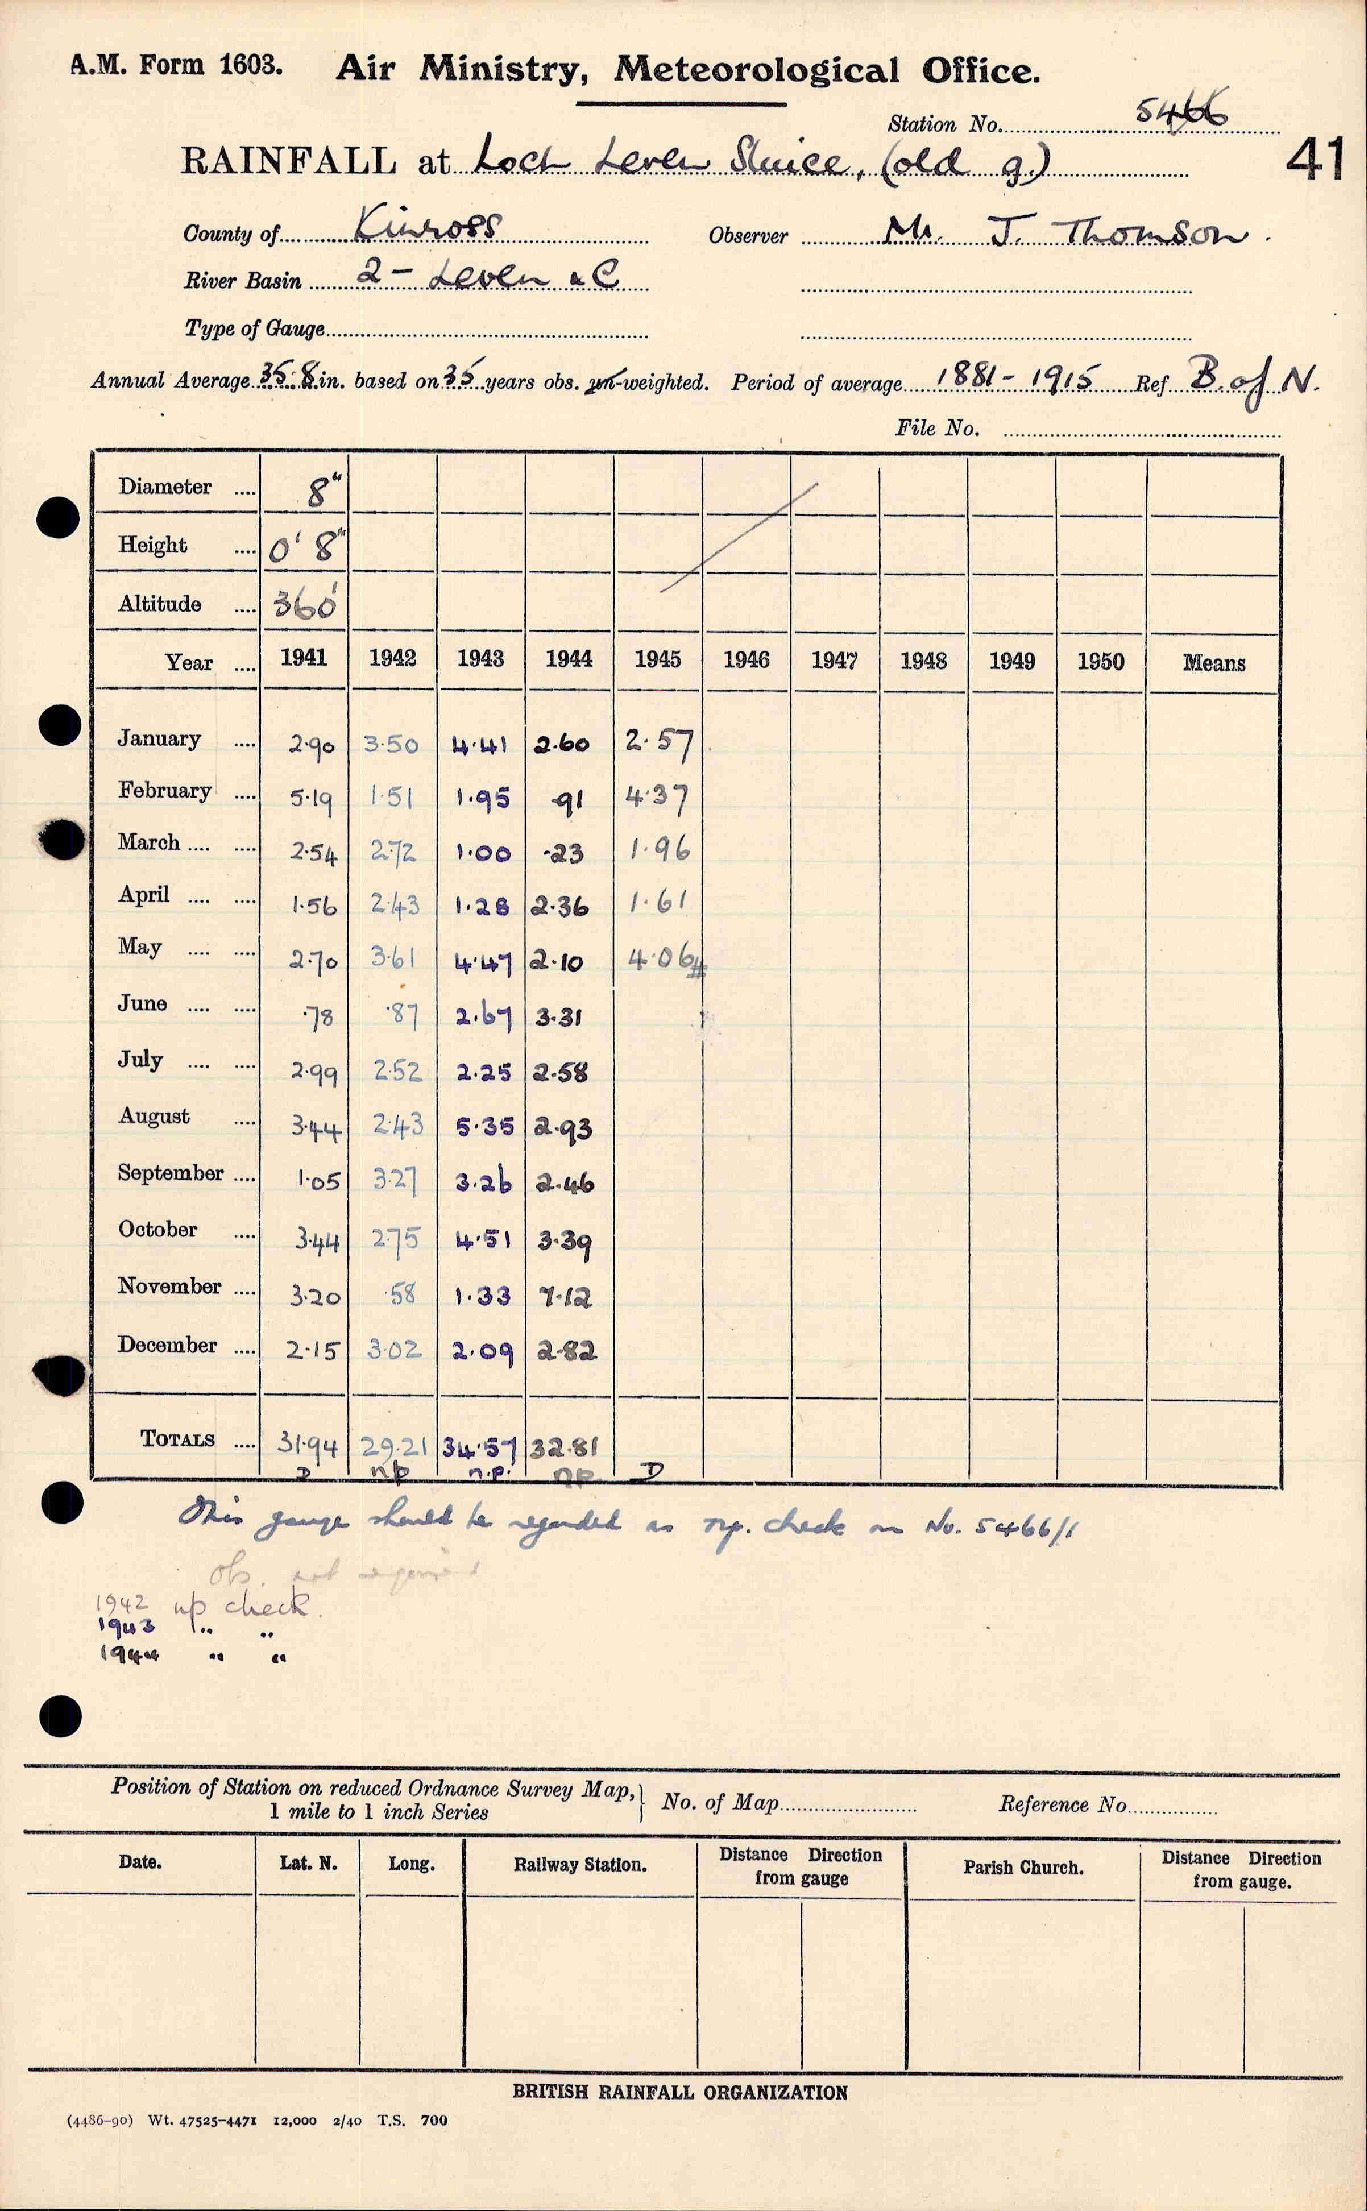 A.M. Form 1603. Air Ministry, Meteorological Office.
Station No. 5466
RAINFALL at Loch Leven Sluice, (old g.) 41
County of Kinross Observer Mr. J. Thomson.
River Basin 2 - Leven &C
Type of Gauge
Annual Average 35.8 in. based on 35 years obs. un-weighted. Period of average 1881 - 1915 Ref B. of N.
File No.
Diameter .... 8"
Height .... 0' 8"
Altitude .... 360'
Year .... 1941 1942 1943 1944 1945 1946 1947 1948 1949 1950 Means
January .... 2.90 3.50 4.41 2.60 2.57
February .... 5.19 1.51 1.95 .91 4.37
March .... .... 2.54 2.72 1.00 .23 1.96
April .... .... 1.56 2.43 1.28 2.36 1.61
May .... .... 2.70 3.61 4.47 2.10 4.06#
June .... .... .78 .87 2.67 3.31
July .... .... 2.99 2.52 2.25 2.58
August .... 3.44 2.43 5.35 2.93
September .... 1.05 3.27 3.26 2.46
October .... 3.44 2.75 4.51 3.39
November .... 3.20 .58 1.33 7.12
December .... 2.15 3.02 2.09 2.82
TOTALS .... 31.94 29.21 34.57 32.81
D np n.p. np D
This gauge should be regarded as n.p. check on No. 5466/1
Obs. not required
1942 np check.
1943 " "
1944 " "
Position of Station on reduced Ordnance Survey Map, 1 mile to 1 inch Series No. of Map Reference No
Date. Lat. N. Long. Railway Station. Distance Direction from gauge Parish Church. Distance Direction from gauge.
BRITISH RAINFALL ORGANIZATION
(4486-90) Wt. 47525-4471 12,000 2/40 T.S. 700